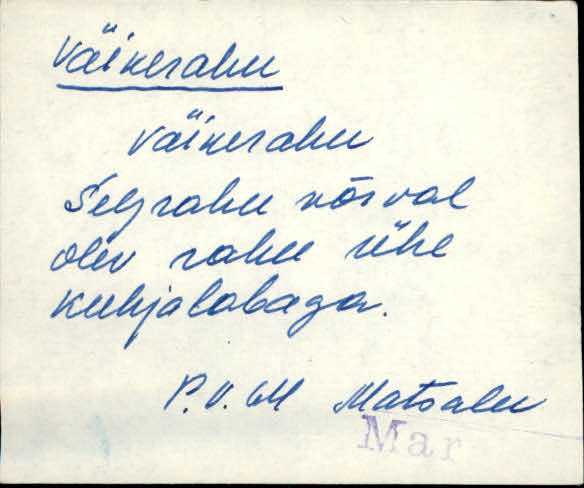 Väikerahu
Väikerahu
Selgrahu kõrval
olev rahu ühe
kuhjalabaga.
P.V.M Matsalu
Mar